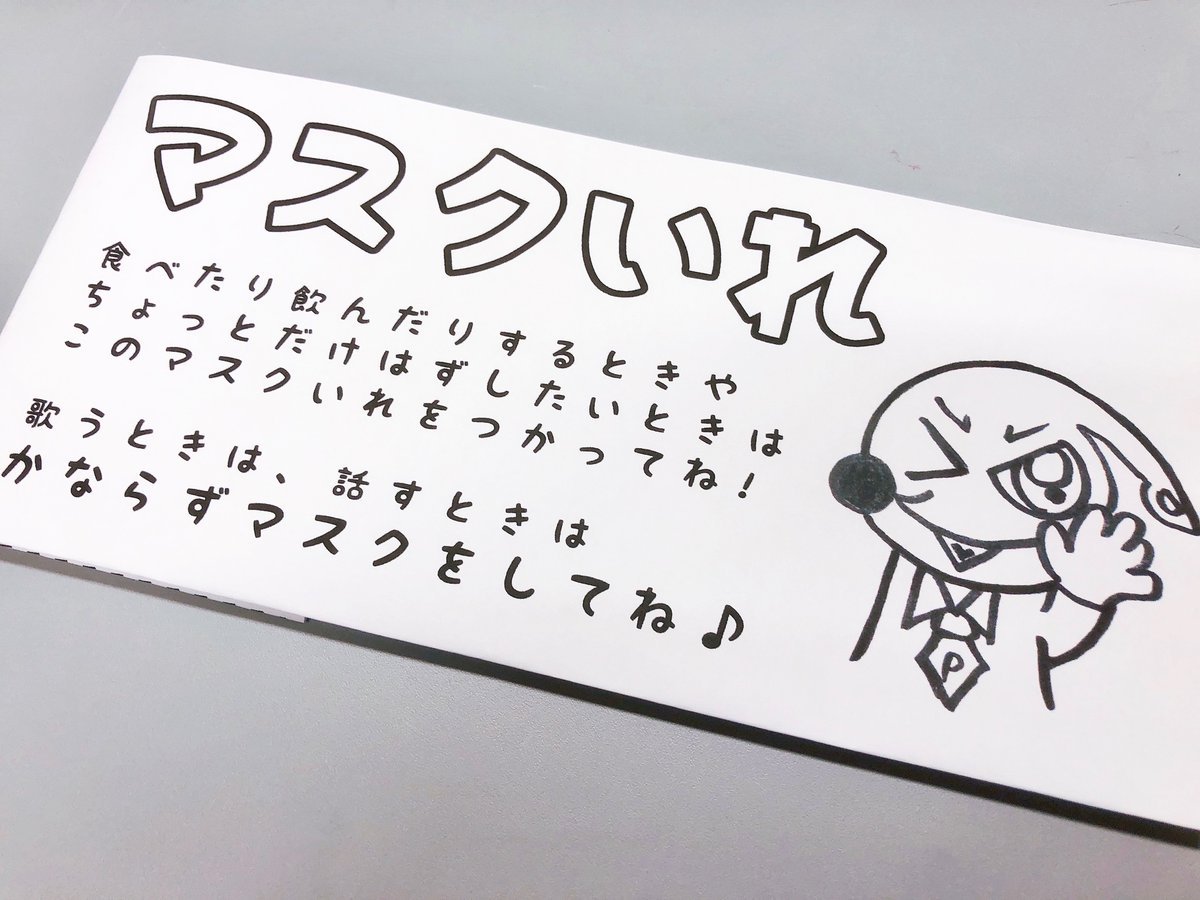 マスクいれ
食べたり飲んだりするときや
ちょっとだけはずしたいときは
このマスクいれをつかってね!
歌うときは、話すときは
かならずマスクをしてね♪
P